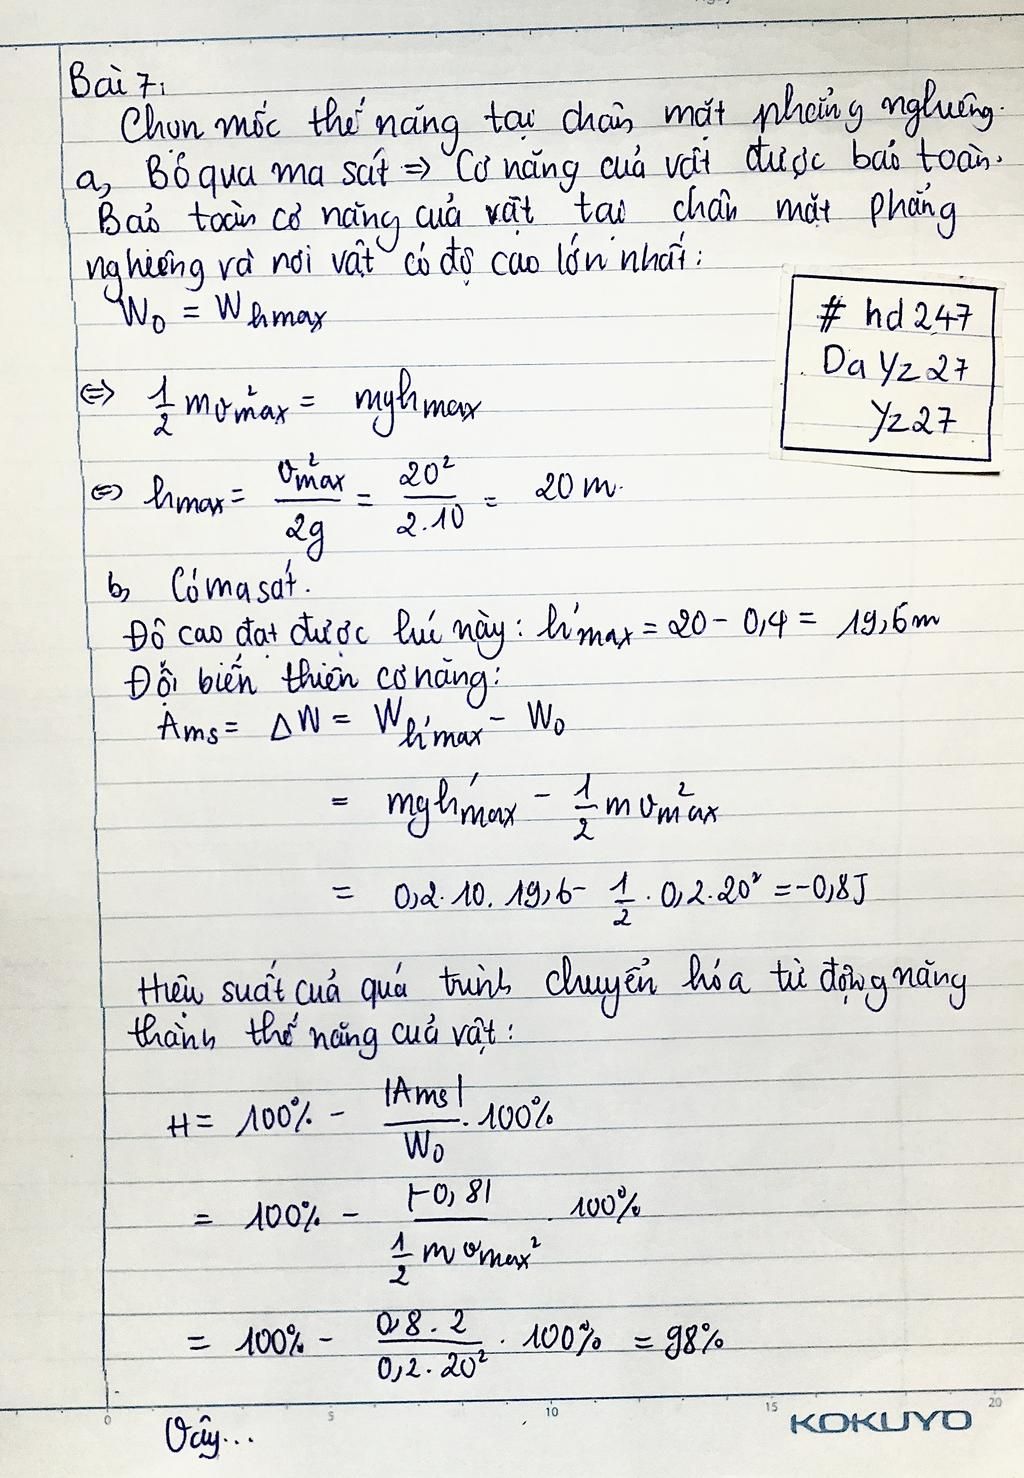 Bài 7:
Chọn mốc thế năng tại chân mặt phẳng nghiêng.
a, Bỏ qua ma sát => Cơ năng của vật được bảo toàn.
Bảo toàn cơ năng của vật tại chân mặt phẳng
nghiêng và nơi vật có độ cao lớn nhất:
W₀ = W hmax
# hd 247
Da Yz 27
Yz27
<=> 1/2 mv²max = mghmax
<=> hmax = v²max/2g = 20²/2.10 = 20 m.
b, Có ma sát.
Độ cao đạt được lúc này: h'max = 20 - 0,4 = 19,6m
Độ biến thiên cơ năng:
Ams = ΔW = W h'max - W₀
= mgh'max - 1/2 mv²max
= 0,2.10.19,6 - 1/2 . 0,2.20² = -0,8J
Hiệu suất của quá trình chuyển hóa từ động năng
thành thế năng của vật:
H = 100% - |Ams|/W₀ . 100%
= 100% - |-0,8|/(1/2 m vmax²) . 100%
= 100% - 0,8.2/0,2.20² . 100% = 98%
0 5 10 15 20
KOKUYO
Vậy...